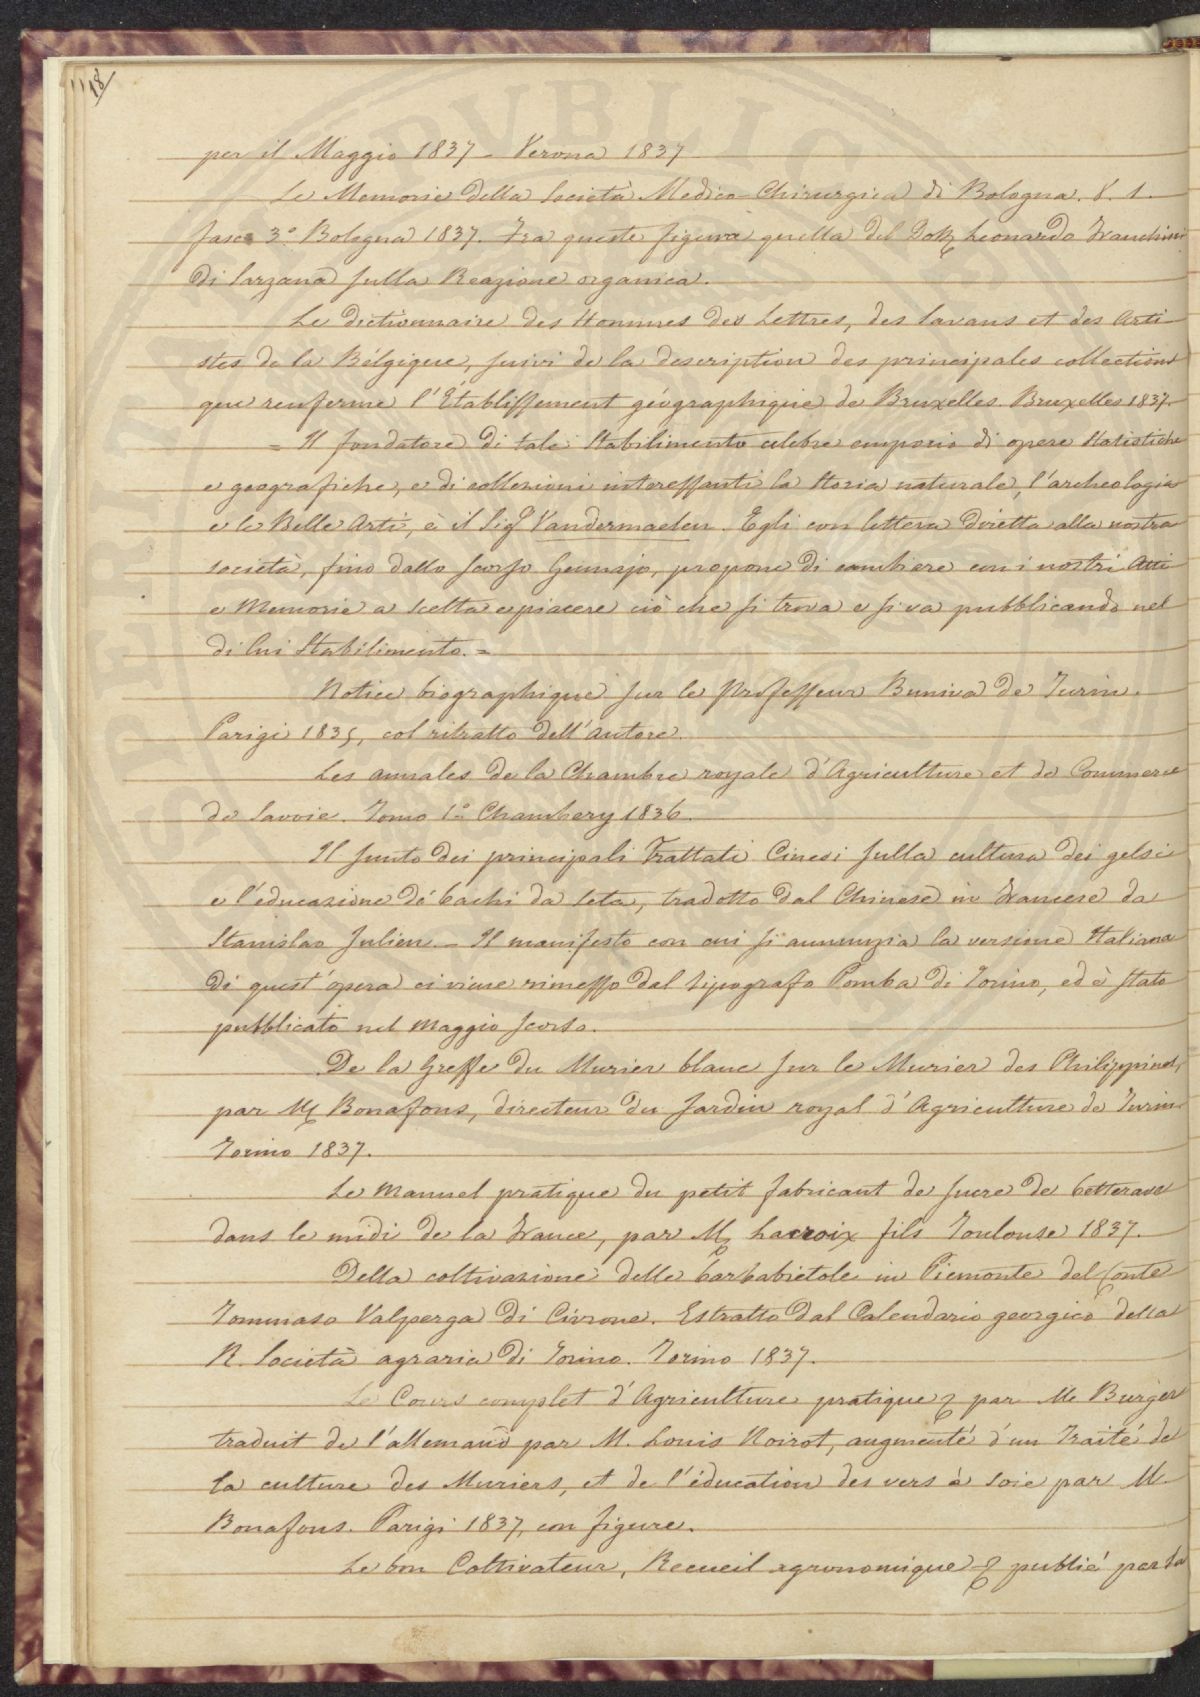 18
per il Maggio 1837 - Verona 1837
Le Memorie della Società Medico-Chirurgica di Bologna. V. 1.
fasc. 3.º Bologna 1837. Fra queste figura quella del Dott. Leonardo Franchini
di Sarzana sulla Reazione organica.
Le dictionnaire des Hommes des Lettres, des savans et des Arti
stes de la Bélgique, suivi de la description des principales collections
que renferme l'Établissement géographique de Bruxelles. Bruxelles 1837.
= Il fondatore di tale Stabilimento celebre emporio di opere Statistiche
e geografiche, e di collezioni interessanti la Storia naturale, l'archeologia
e le Belle Arti, è il Sig. Vandermaelen. Egli con lettera diretta alla nostra
società, fino dallo scorso Gennajo, propone di cambiare con i nostri Atti
e Memorie a scelta e piacere ciò che si trova e si va pubblicando nel
di lui Stabilimento. =
Notice biographique sur le Professeur Buniva de Turin.
Parigi 1835, col ritratto dell'autore.
Les annales de la Chambre royale d'Agriculture et de Commerce
de Savoie. Tomo 1.º Chambery 1836.
Il sunto dei principali Trattati Cinesi sulla cultura dei gelsi
e l'educazione de' bachi da seta, tradotto dal Chinese in Francese da
Stanislao Julien. - Il manifesto con cui si annunzia la versione Italiana
di quest'opera ci viene rimesso dal tipografo Pomba di Torino, ed è stato
pubblicato nel Maggio scorso.
De la Greffe du Murier blanc sur le Murier des Philippines,
par M. Bonafous, directeur du Jardin royal d'Agriculture de Turin
Torino 1837.
Le Manuel pratique du petit fabricant de sucre de betterave
dans le midi de la France, par M. Lacroix fils Toulouse 1837.
Della coltivazione delle barbabietole in Piemonte del Conte
Tommaso Valperga di Civrone. Estratto dal Calendario georgico della
R. Società agraria di Torino. Torino 1837.
Le Cours complet d'Agriculture pratique & par M. Burger
traduit de l'allemand par M. Louis Noirot, augmenté d'un Traité de
la culture des Muriers, et de l'éducation des vers à soie par M.
Bonafous. Parigi 1837, con figure.
Le bon Coltivateur, Recueil agronomique & publié par la